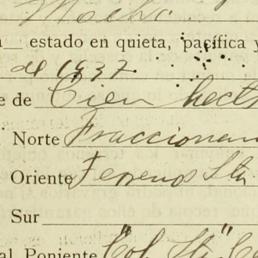 Mocho.
a estado en quieta, pacífica y
de 1937
e de Cien hect
Norte Fraccionam
Oriente Terrenos Sta
Sur
al Poniente "Col. Sta" C